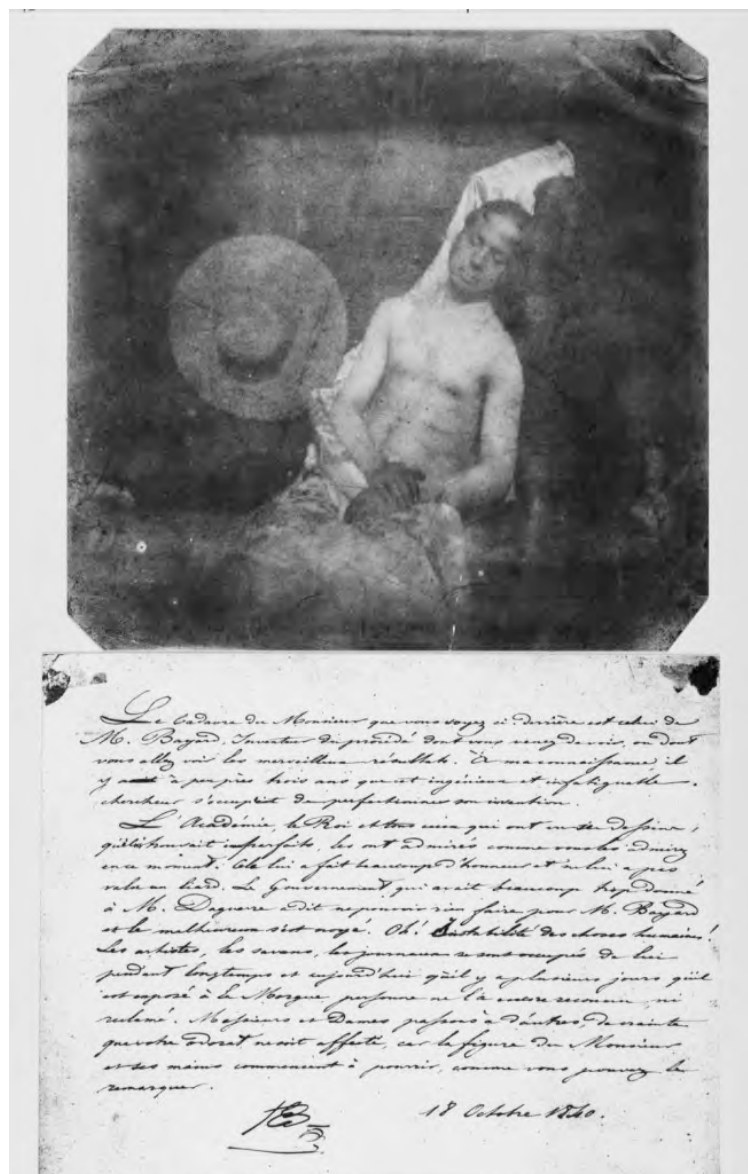 Le Cadavre du Monsieur que vous voyez ci derrière est celui de
M. Bayard, Inventeur du procédé dont vous venez de voir, ou dont
vous allez voir les merveilleux résultats. À ma connaissance, il
y a à peu près trois ans que cet ingénieux et infatigable
chercheur s'occupait de perfectionner son invention.
L'Académie, le Roi et tous ceux qui ont vu ses dessins,
qu'il trouvait imparfaits, les ont admirés comme vous les admirez
en ce moment. Cela lui a fait beaucoup d'honneur et ne lui a pas
valu un liard. Le Gouvernement, qui avait beaucoup trop donné
à M. Daguerre a dit ne pouvoir rien faire pour M. Bayard
et le malheureux s'est noyé. Oh! Instabilité des choses humaines!
Les artistes, les savans, les journaux se sont occupés de lui
pendant longtemps et aujourd'hui qu'il y a plusieurs jours qu'il
est exposé à la Morgue, personne ne l'a encore reconnu, ni
réclamé. Messieurs et Dames, passons à d'autres, de crainte
que votre odorat ne soit affecté, car la figure du Monsieur
et ses mains commencent à pourrir, comme vous pouvez le
remarquer.
18 Octobre 1840.